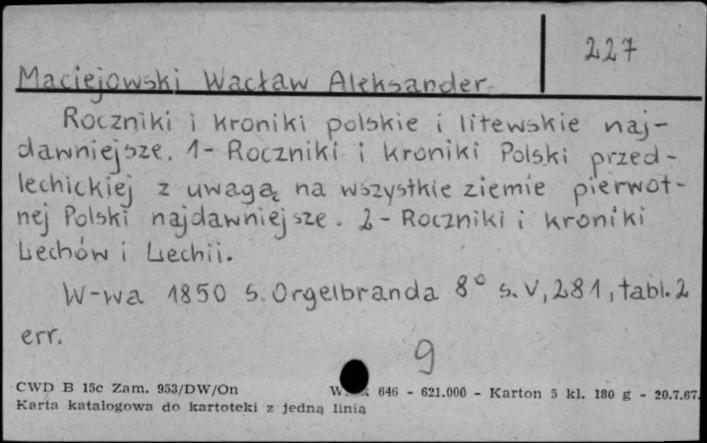 227
Maciejowski Wacław Aleksander
Roczniki i kroniki polskie i litewskie naj-
dawniejsze. 1- Roczniki i kroniki Polski przed-
lechickiej z uwagą na wszystkie ziemie pierwot-
nej Polski najdawniejsze. 2- Roczniki i kroniki
Lechów i Lechii.
W-wa 1850 S. Orgelbranda 8° s. V, 281, tabl. 2
err.
9
CWD B 15c Zam. 953/DW/On 646 - 621.000 - Karton 5 kl. 180 g - 20.7.67.
Karta katalogowa do kartoteki z jedną linią